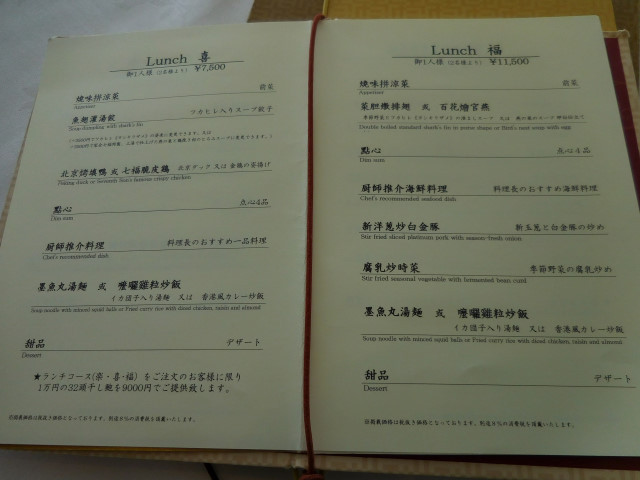 Lunch 喜
御1人様 (2名様より) ¥7,500
燒味拼涼菜 前菜
Appetizer
魚翅灌湯餃 フカヒレ入りスープ餃子
Soup-dumpling with shark's fin
北京烤填鴨 或 七福脆皮鷄 北京ダック 又は 金鶏の姿揚げ
Peking duck or Seventh Son's famous crispy chicken
點心 点心4品
Dim sum
厨師推介料理 料理長のおすすめ一品料理
Chef's recommended dish
墨魚丸湯麺 或 嚤囉雞粒炒飯
イカ団子入り湯麺 又は 香港風カレー炒飯
Soup noodle with minced squid balls or Fried curry rice with diced chicken, raisin and almond
甜品 デザート
Dessert
★ランチコース(榮・喜・福) をご注文のお客様に限り
1万円の32頭干し鮑を9000円でご提供致します。
Lunch 福
御1人様 (2名様より) ¥11,500
燒味拼涼菜 前菜
Appetizer
菜胆燉排翅 或 百花燴官燕
Double boiled standard shark's fin in purse shape or Bird's nest soup with egg
點心 点心4品
Dim sum
厨師推介海鮮料理 料理長のおすすめ海鮮料理
Chef's recommended seafood dish
新洋葱炒白金豚 新玉葱と白金豚の炒め
Stir fried sliced platinum pork with season-fresh onion
腐乳炒時菜 季節野菜の腐乳炒め
Stir fried seasonal vegetable with fermented bean curd
墨魚丸湯麺 或 嚤囉雞粒炒飯
イカ団子入り湯麺 又は 香港風カレー炒飯
Soup noodle with minced squid balls or Fried curry rice with diced chicken, raisin and almond
甜品 デザート
Dessert